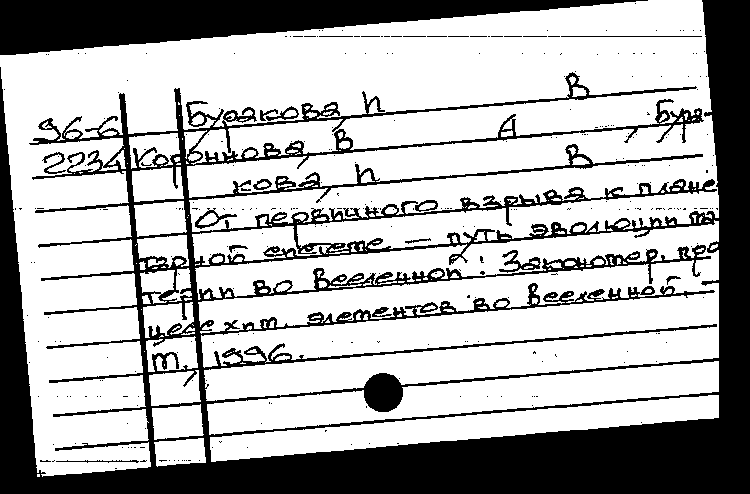 96-6 Буракова, h В
2234 Короннова, В А , Бура-
кова, h В
От первичного взрыва к плане-
тарной системе. — путь эволюции ма-
терии во Вселенной: Закономер. про-
цесс хим. элементов во Вселенной. —
М., 1996.